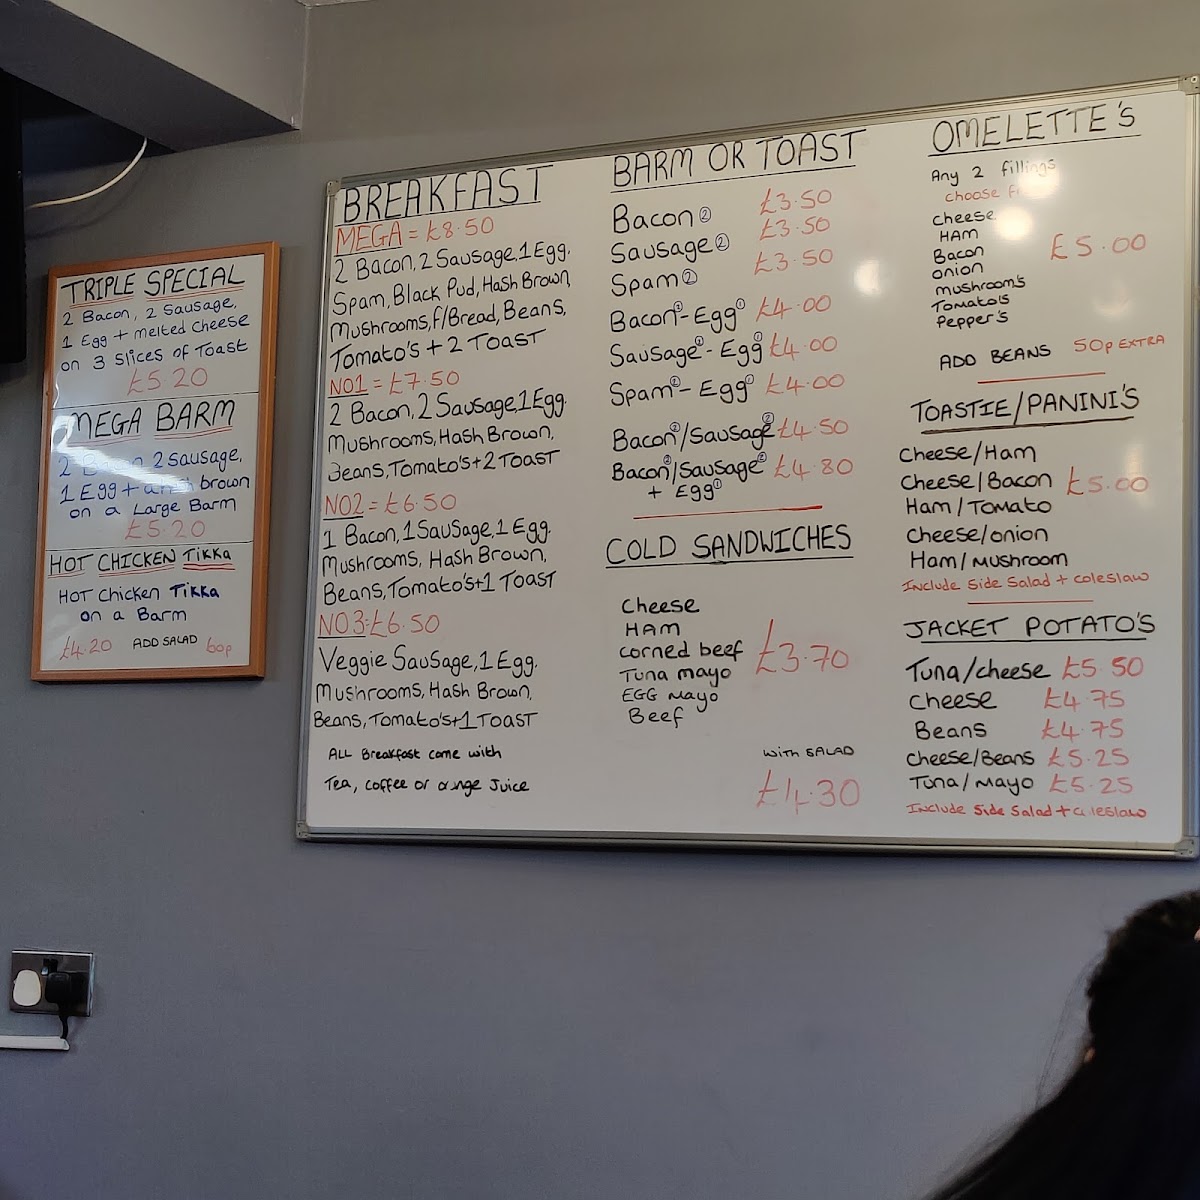 TRIPLE SPECIAL
2 Bacon, 2 Sausage,
1 Egg + melted cheese
on 3 slices of Toast
£5.20
MEGA BARM
2 Bacon 2 sausage,
1 Egg + brown
on a Large Barm
£5.20
HOT CHICKEN Tikka
HOT Chicken Tikka
on a Barm
£4.20 ADD SALAD 60p
BREAKFAST
MEGA = £8.50
2 Bacon, 2 Sausage, 1 Egg.
Spam, Black Pud, Hash Brown,
Mushrooms, f/Bread, Beans,
Tomato's + 2 TOAST
NO1 = £7.50
2 Bacon, 2 Sausage, 1 Egg.
Mushrooms, Hash Brown,
Beans, Tomato's + 2 TOAST
NO2 = £6.50
1 Bacon, 1 Sausage, 1 Egg.
Mushrooms, Hash Brown,
Beans, Tomato's + 1 TOAST
NO3 = £6.50
Veggie Sausage, 1 Egg.
Mushrooms, Hash Brown,
Beans, Tomato's + 1 TOAST
ALL Breakfast come with
Tea, coffee or orange Juice
BARM OR TOAST
Bacon ② £3.50
Sausage ② £3.50
Spam ② £3.50
Bacon①-Egg① £4.00
Sausage①-Egg① £4.00
Spam①-Egg① £4.00
Bacon②/Sausage② £4.50
Bacon②/Sausage② £4.80
+ Egg①
COLD SANDWICHES
Cheese
HAM
corned beef £3.70
Tuna mayo
EGG Mayo
Beef
WITH SALAD
£4.30
OMELETTE'S
Any 2 fillings
choose
cheese
HAM
Bacon £5.00
onion
mushroom's
Tomato's
Pepper's
ADD BEANS 50p EXTRA
TOASTIE/PANINI'S
Cheese/Ham
Cheese/Bacon £5.00
Ham/Tomato
Cheese/onion
Ham/Mushroom
Include Side Salad + coleslaw
JACKET POTATO'S
Tuna/cheese £5.50
Cheese £4.75
Beans £4.75
Cheese/Beans £5.25
Tuna/Mayo £5.25
Include Side Salad + coleslaw